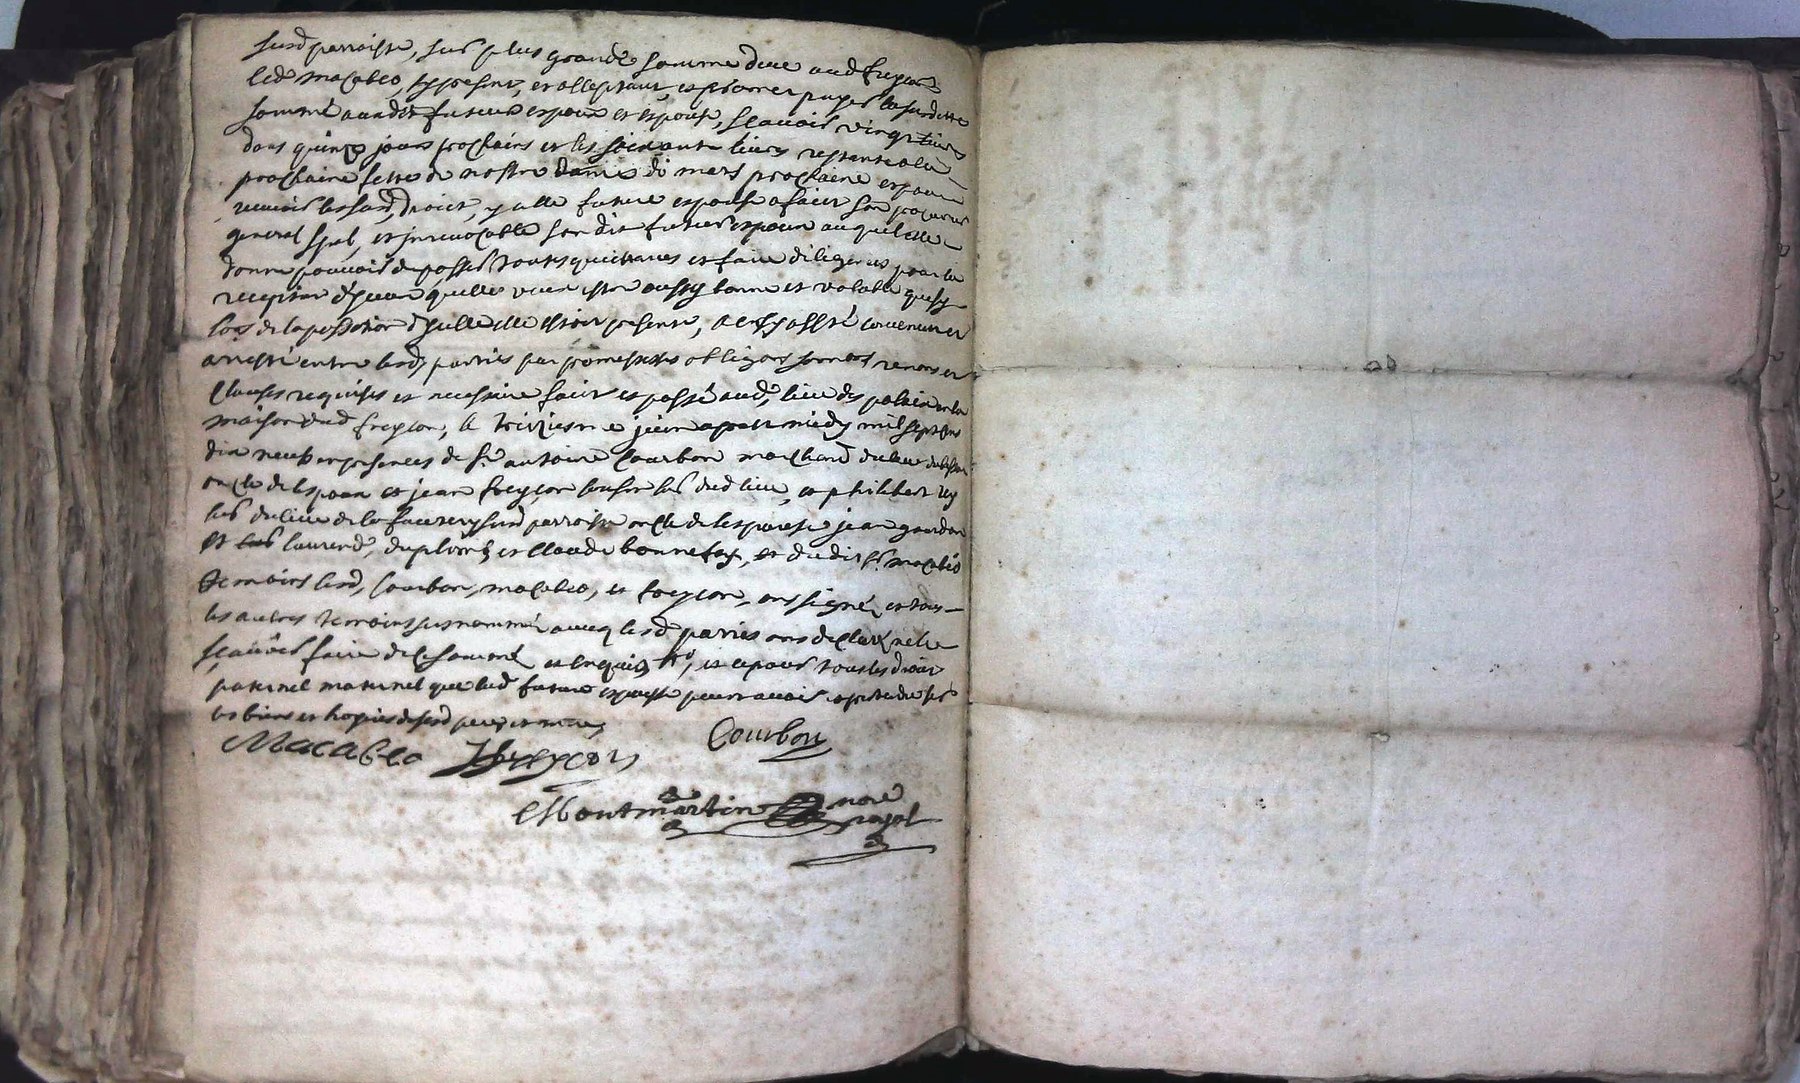 susd parroisse, sur plus grande somme deue aud freyçon
led macabeo, sy present, et acceptant, et promet payer la susditte
somme ausdits futeurs espoux et espouse, scavoir vingt livres
dans quinze jours prochains et les soixante livres restante a la
prochaine feste de nostre dame de mars prochaine et pour
recevoir lessusd droits, ycelle future espouse a faict son procureur
general spal, et inrevocable son dit futeur espoux auquel elle
donne pouvoir de passer toutes quictances et faire diligences pour la
reception d'yceux quelle veut estre aussy bonne et valable que sy
lors de la passation d'ycelle elle estoit presente, a esté convenu et
arresté entre lesd parties par promesses obligaons sermant renons et
clauses requises et necessaire faict et passé aud lieu des
maison dud freyçon, le treiziesme juin apres midy mil sept cens
dix neuf en presences de sr antoine Courbon marchand du lieu
oncle de lespoux et jean freyçon dud lieu, et philibert rey
du lieu de la faurerey susd parroisse oncle de lespouse jean gourdon
et laurend, et claude bonnefoy, et dudit sr macabeo
temoins lesd, Courbon, macabeo, et freyçon, ont signé et tous
les autres temoins susnommés avecq lesd parties ont declaré ne le
scavoir faire de ce sommé et enquis, et ce pour tous les droits
paternel maternel que lad future espouse peut avoir et pretendre sur
les biens et hoiries de sesd pere et mere
Macabeo freyçon Courbon
Montmartin nore
royal